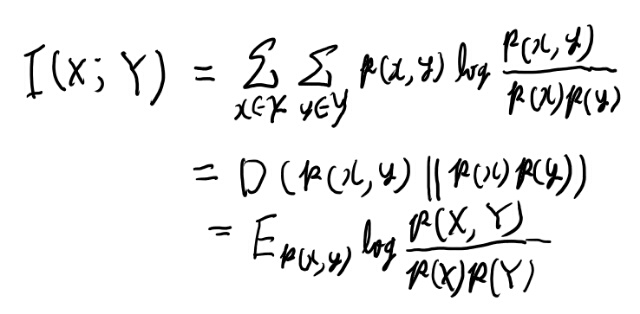 I(X; Y) = ∑_{x∈𝒳} ∑_{y∈𝒴} p(x, y) log \frac{p(x, y)}{p(x)p(y)}
= D(p(x, y) || p(x)p(y))
= E_{p(x,y)} log \frac{p(X, Y)}{p(X)p(Y)}